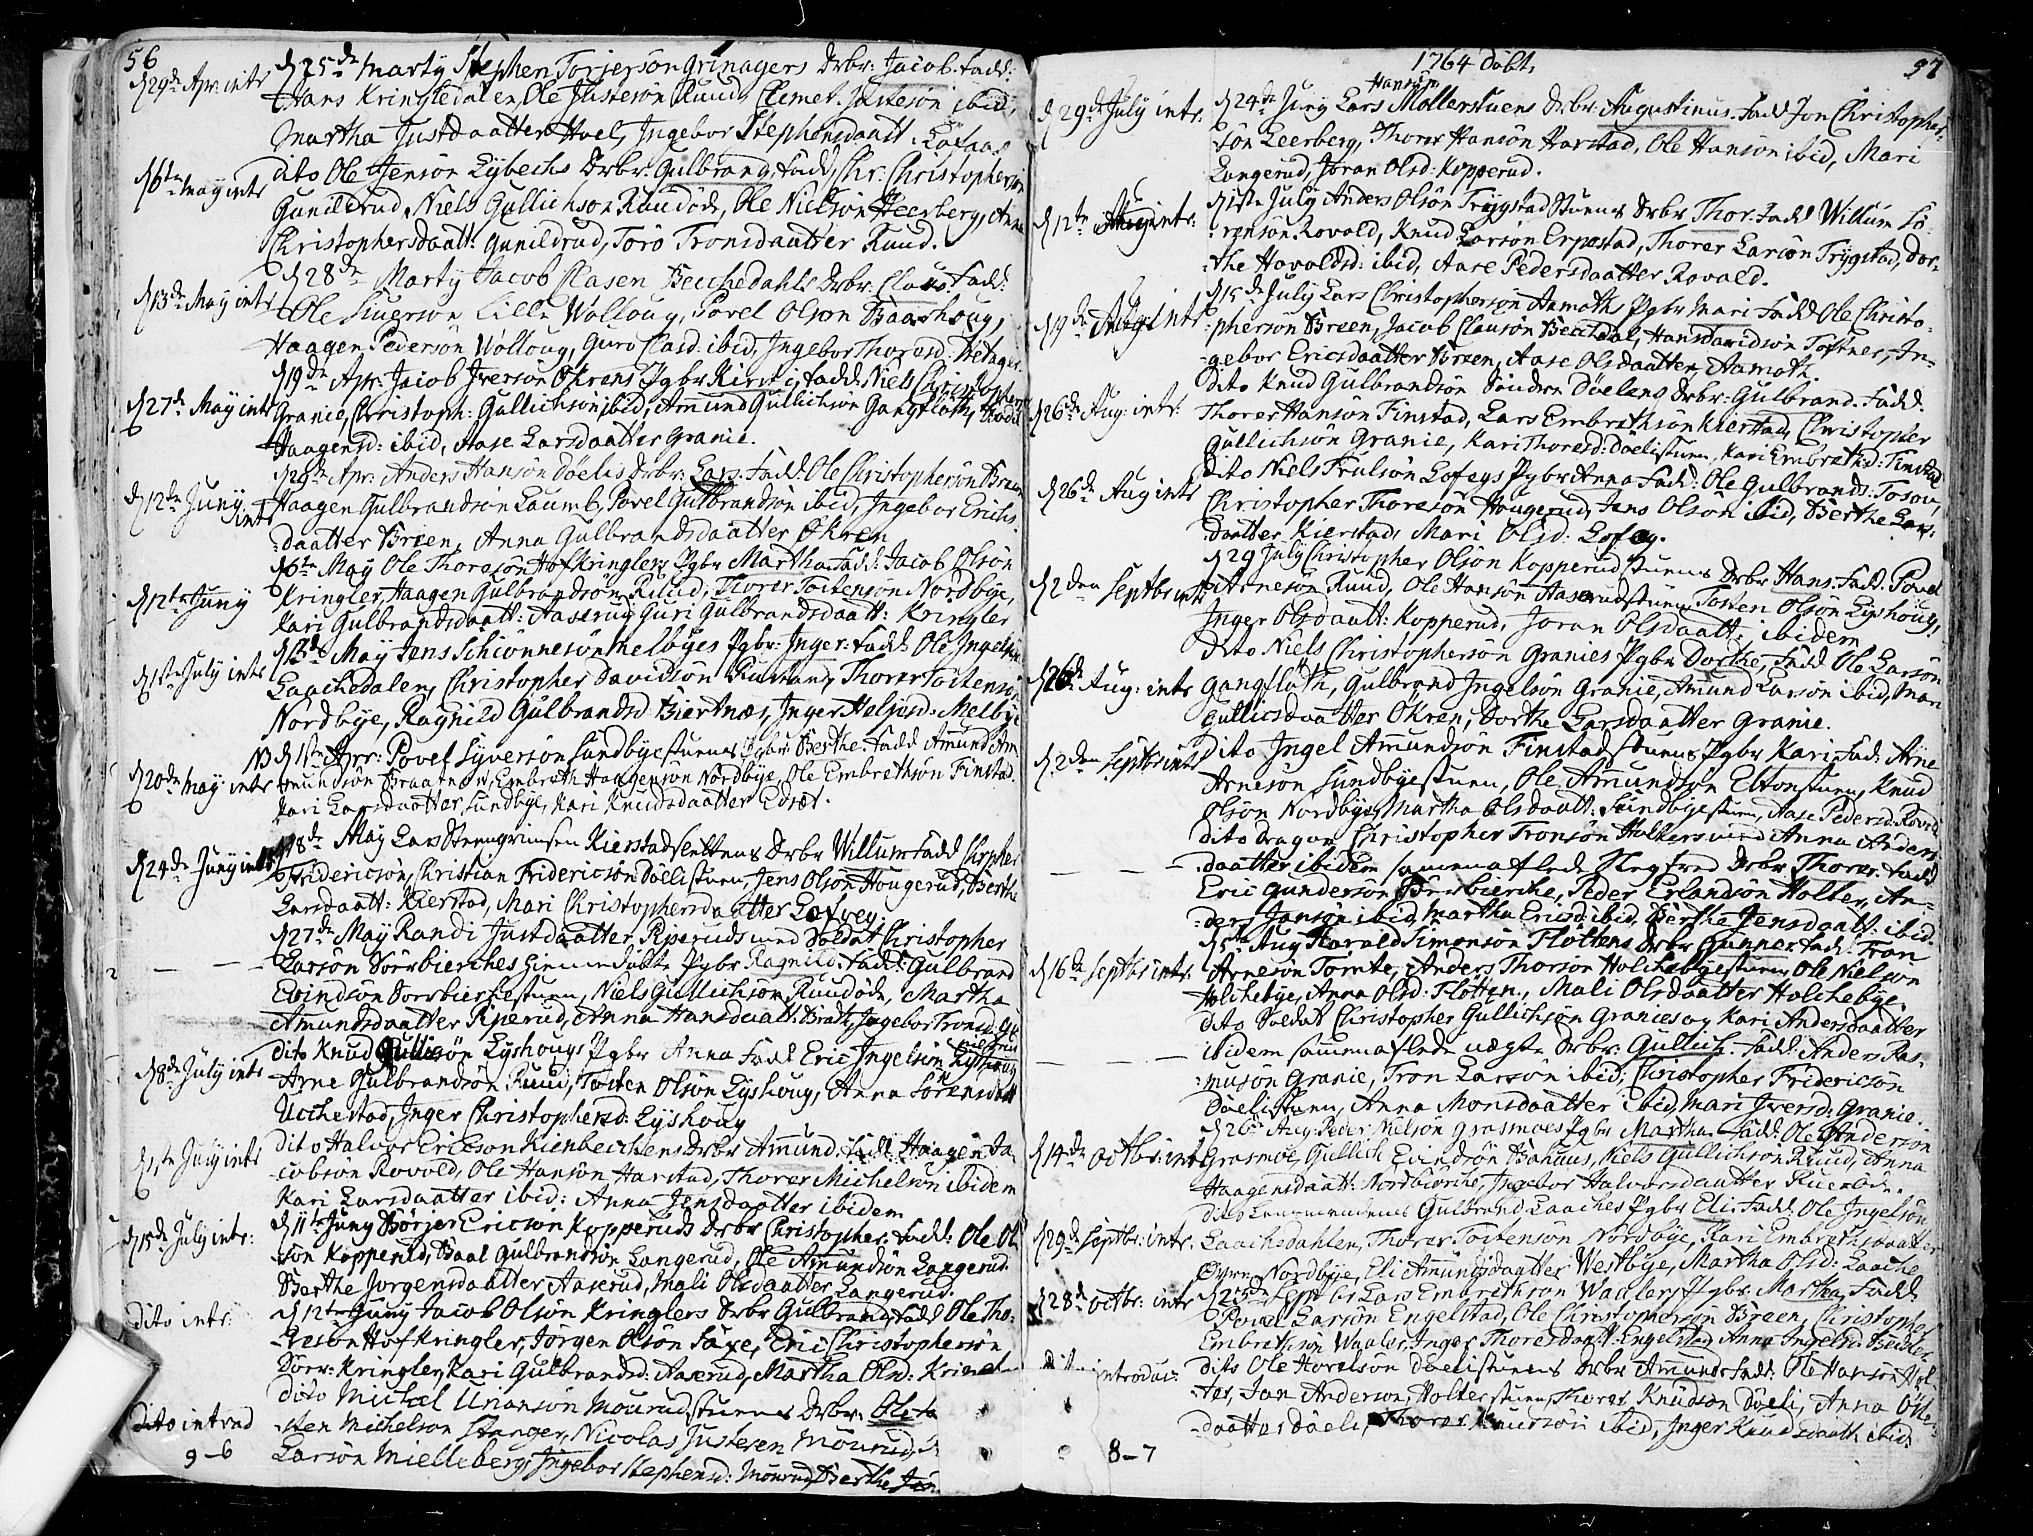 56
d 29de Apr: intr
d 25de Marty Stephen Torjersön Grinagers Drbr: Jacob. Fadd:
Hans Kringledalen, Ole Justesön Ruud, Clemet Justesön ibid,
Martha Justdaatter Hoel, Ingebor Stephensdaatt: Löfaas
d 6te May intr
dito Ole Jensön Lybechs Drbr: Gulbrand, Fadd, Chr: Christophersön
Gunildrud, Niels Gullichsön Ruudöde, Ole Nielsön Heerberg, Anna
Christophersdaatt: Gunildrud, Torö Tronsdaatter Ruud.
d 13de May intr
d 28de Marty Jacob Clasen Bechedahls Drbr: Claus. Fadd:
Ole Siversön Lille Wolloug, Povel Olsön Baashoug,
Haagen Pedersön Wolloug, Guro Clasd: ibid, Ingebor Thoresd:
d 27de May intr
d 19de Apr: Jacob Iversön Okrens Pgbr Kirsti, Fadd: Niels Christophers:
Granie, Christoph: Gullichsön ibid, Amund Gullichsön Gangfloth,
Haagensd: ibid, Aase Larsdaatter Granie.
d 12te Juny intr
d 28de Apr: Anders Hansön Döelis Drbr: Lars. Fadd: Ole Christophersön Breen
Haagen Gulbrandsön Laumb, Povel Gulbrandsön ibid, Ingebor Erichs
daatter Breen, Anna Gulbrandsdaatter Okren
d 12te Juny
d 6te May Ole Thoresön Hofkringlers Pgbr Martha Fadd: Jacob Olsön
Kringler, Haagen Gulbrandsön Ruud, Thorer Tostensön Nordbye,
Kari Gulbrandsdaatt: Aaserud, Guri Gulbrandsdaatt: Kringler
d 1ste July intr
May Jens Schiönnesön Melbyes Pgbr: Inger: Fadd: Ole Ingelsön
Laachedalen, Christopher Davidsön Rustand, Thorer Tostensön
Nordbye, Ragnild Gulbrandsd Biertnæs, Inger Heljesd: Melbye
d 20de May intr
NB d 1ste Apr: Povel Syversön Sundbyestuens Pgbr Berthe. Fadd: Amund Am
mundsön Braatnæs, Embreth Haagensön Nordbye, Ole Embrethsön Finstad
Kari Larsdaatter Sundbye, Kari Knudsdaatter Edset.
d 24de Juny intr
d 8de May Lars Steengrimsen Kierstadslettens Drbr Willum Fadd Chrpher
Fridericsön, Christian Fridericsön Döelistuen, Jens Olsön Hougerud, Berthe
Larsdaatt: Kierstad, Mari Christophersdaatter Lofæy.
— — —
d 27de May Randi Justdaatter Riseruds med Soldat Christopher
Larsön Sörbierches hiemmedöbte Pgbr Ragnild. Fadd: Gulbrand
Evindsön Sörrbierkestuen, Niels Gullichsön Ruudöde, Martha
Amundsdaatter Riserud, Anna Hansdaatt: Brath, Ingebor Tronsd:
d 8de July intr
dito Knud Gullicsön Lyshougs Pgbr Anna Fadd Eric Ingelsön Lyshoug
Arne Gulbrandsön Ruud, Tosten Olsön Lyshoug, Anna Sörensdaatt
Uschestad, Inger Christophersd: Lyshoug
d 1ste July intr
dito Halvor Ericsön Kienbechens Drbr Amund. Fadd: Haagen Ja
cobsön Rovold, Ole Hansön Harstad, Thorer Michelsön ibidem
Kari Larsdaatter ibid: Anna Jensdaatter ibidem
d 15de July intr:
d 11te Juny Börger Ericsön Kopperuds Drbr Christopher. Fadd: Ole Ol
sön Kopperud, Baal Gulbrandsön Langerud, Ole Amundsön Langerud
Berthe Jorgensdaatter Aaserud, Mali Olsdaatter Langerud.
dito intr:
d 12te Juny Jacob Olsön Kringlers Drbr Gulbrand, Fadd Ole Tho:
resön Hofkringler, Jörgen Olsön Saxe, Eric Christophersön
Sörr: Kringler, Kari Gulbrandsd: Aaserud, Martha Olsd:
dito introd
dito Michæl Unansön Mourudstuens Drbr: Ole
sten Michelsön Stanger, Nicolas Justesen Mourud,
Larsön Mielleberg, Ingebor Stephensd: Mourud, Berthe
9–6
1764 döbt,
57
d 29de July intr.
Hansön
d 24de Juny Lars Mollerstuens Drbr: Augustinus. Fadd Jon Christopher
sön Leerberg, Thorer Hansön Harstad, Ole Hansön ibid, Mari
Langerud, Joran Olsd: Kopperud.
d 12te Aug intr:
d 1ste July Anders Olsön Trygstadstuens Drbr Thor. Fadd Willum Sö
rensön Rovold, Knud Larsön Erpestad, Thorer Larsön Trygstad, Dor-
the Havoldsd: ibid, Aase Pedersdaatter Rovald.
d 19de Aug: intr
d 15de July Lars Christophersön Aamoths Pgbr Mari Fadd Ole Christo-
phersön Breen, Jacob Clausön Bechdal, Hans Davidsön Tostner, In-
gebor Ericsdaatter Breen, Aase Olsdaatter Aamoth
d 26de Aug: intr:
dito Knud Gulbrandsön Söndre Döelens Drbr: Gulbrand. Fadd:
Thorer Hansön Finstad, Lars Embrethsön Kierstad, Christopher
Gullichsön Granie, Kari Thoresd: Döelistuen, Kari Embrethsd: Finstad
d 26de Aug intr
dito Niels Truulsön Lofæys Pgbr Anna Fadd: Ole Gulbrands: Tosou,
Christopher Thoresön Hougerud, Jens Olsön ibid, Berthe Lars-
daatter Kierstad, Mari Olsd: Lofæy.
d 2den Septbr intr
d 29 July Christopher Olsön Kopperudstuens Drbr Hans: Fadd: Povel
Arnesön Ruud, Ole Hansön Aaserudstuen, Tosten Olsön Lyshoug,
Inger Olsdaatt: Kopperud, Joran Olsdaatt: ibidem
d 26de Aug: intr
dito Niels Christophersön Granies Pgbr Dorthe, Fadd Ole Larsön
Gangfloth, Gulbrand Ingelsön Granie, Amund Larsön ibid, Mari
Gullicsdaatter Okren, Dorthe Larsdaatter Granie.
d 2den Septbr intr
dito Ingel Amundsön Finstadstuens Pgbr Kari Fadd: Arne
Arnesön Sundbyestuen, Ole Amundsön Eltonstuen, Knud
Olsön Nordbye, Martha Olsdaatt: Sundbyestuen, Aase Pedersd: Rovold
— — —
dito Dragon Christopher Tronsön Holters med Anna Anders
daatter ibidem sammenaflede Slegfred Drbr Thorer. Fadd
Eric Gundersön Sörbierche, Peder Erlandsön Holter, An-
ders Jansön ibid, Martha Ericsd: ibid, Berthe Jensdaatt: ibid.
d 16de Septbr intr.
d 5te Aug Harald Simensön Flöttens Drbr Gunner Fad: Tron
Arnesön Tomte, Anders Thorsön Holchebyestuen, Ole Nielsön
Holchebye, Anna Olsd: Flötten, Mali Olsdaatter Holchebye.
— — —
dito Soldat Christopher Gullichsön Granies og Kari Andersdaatter
ibidem sammenaflede uægte Drbr: Gullich. Fadd: Anders Ras
musön Granie, Tron Larsön ibid; Christopher Fridericsön
Döelistuen, Anna Monsdaatter ibid, Mari Iversd: Granie.
d 14de Octbr: intr
d 26de Aug: Peder Nielsön Grasmoes Pgbr Martha. Fadd: Ole Andersön
Grasmoe, Gullich Evindsön Bahuus, Niels Gullichsön Ruud, Anna
Haagensdaatt: Nordbierche, Ingebor Halvorsdaatter
d 29de Septbr: intr.
dito Gulbrand Laaches Pgbr Eli: Fadd: Ole Ingelsön
Laachedahlen, Thorer Tostensön Nordbye, Kari Embrethsdaatter
Nordbye, Eli Amundsdaatter Westbye, Martha Olsd: Laache
d 28de Octbr: intr
d 25de Septbr Lars Embrethsön Waalers Pgbr: Martha, Fadd:
Povel Larsön Engelstad, Ole Christophersön Breen, Christopher
Embrethsön Waaler, Inger Thoresdaatt: Engelstad, Anna Ingelsd:
dito introduc:
dito Ole Hovelsön Döelistuens Drbr Amund: Fadd: Ole Hansön Hol
ter, Jan Andersön Holterstuen, Thorer Knudsön Döeli, Anna
daatter Döeli, Thorer Knudsön ibid, Inger Knudsdaatt: ibid.
8–7